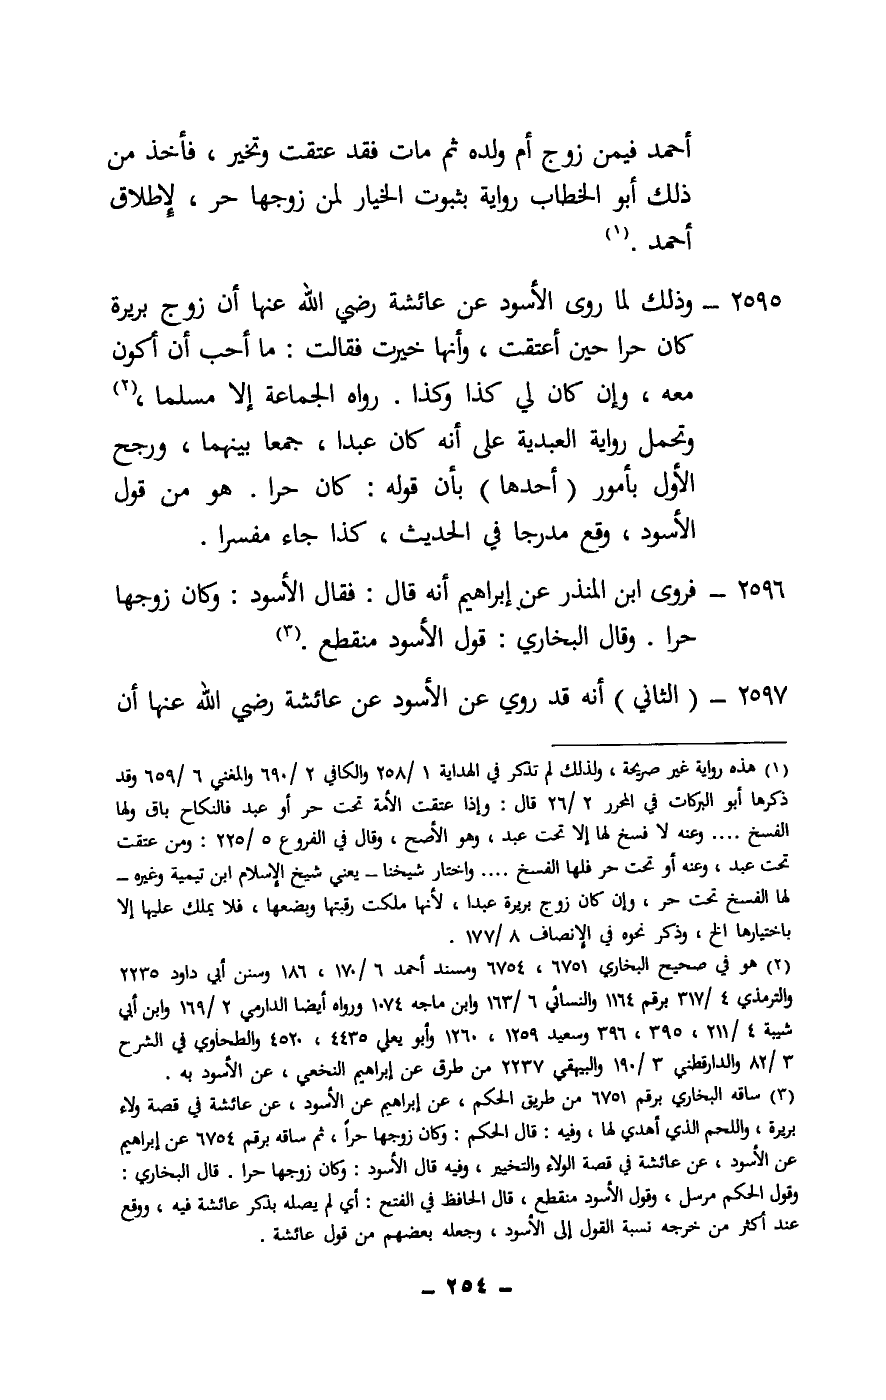 أحمد فيمن زوج أم ولده ثم مات فقد عتقت وتخير ، فأخذ من
ذلك أبو الخطاب رواية بثبوت الخيار لمن زوجها حر ، لإطلاق
أحمد .(١)
٢٥٩٥ ــ وذلك لما روى الأسود عن عائشة رضي الله عنها أن زوج بريرة
كان حرا حين أعتقت ، وأنها خيرت فقالت : ما أحب أن أكون
معه ، وإن كان لي كذا وكذا . رواه الجماعة إلا مسلما ،(٢)
وتحمل رواية العبدية على أنه كان عبدا ، جمعا بينهما ، ورجح
الأول بأمور ( أحدها ) بأن قوله : كان حرا . هو من قول
الأسود ، وقع مدرجا في الحديث ، كذا جاء مفسرا .
٢٥٩٦ ــ فروى ابن المنذر عن إبراهيم أنه قال : فقال الأسود : وكان زوجها
حرا . وقال البخاري : قول الأسود منقطع .(٣)
٢٥٩٧ ــ ( الثاني ) أنه قد روي عن الأسود عن عائشة رضي الله عنها أن
(١) هذه رواية غير صريحة ، ولذلك لم تذكر في الهداية ١ /٢٥٨ والكافي ٢ /٦٩٠ والمغني ٦ /٦٥٩ وقد
ذكرها أبو البركات في المحرر ٢ /٢٦ قال : وإذا عتقت الأمة تحت حر أو عبد فالنكاح باق ولها
الفسخ .... وعنه لا فسخ لها إلا تحت عبد ، وهو الأصح ، وقال في الفروع ٥ /٢٢٥ : ومن عتقت
تحت عبد ، وعنه أو تحت حر فلها الفسخ .... واختار شيخنا ــ يعني شيخ الإسلام ابن تيمية وغيره ــ
لها الفسخ تحت حر ، وإن كان زوج بريرة عبدا ، لأنها ملكت رقبتها وبضعها ، فلا يملك عليها إلا
باختيارها الخ ، وذكر نحوه في الإنصاف ٨ /١٧٧ .
(٢) هو في صحيح البخاري ٦٧٥١ ، ٦٧٥٤ ومسند أحمد ٦ /١٧٠ ، ١٨٦ وسنن أبي داود ٢٢٣٥
والترمذي ٤ /٣١٧ برقم ١١٦٤ والنسائي ٦ /١٦٣ وابن ماجه ١٠٧٤ ورواه أيضا الدارمي ٢ /١٦٩ وابن أبي
شيبة ٤ /٢١١ ، ٣٩٥ ، ٣٩٦ وسعيد ١٢٥٩ ، ١٢٦٠ وأبو يعلي ٤٤٣٥ ، ٤٥٢٠ والطحاوي في الشرح
٣ /٨٢ والدارقطني ٣ /١٩٠ والبيهقي ٢٢٣٧ من طرق عن إبراهيم النخعي ، عن الأسود به .
(٣) ساقه البخاري برقم ٦٧٥١ من طريق الحكم ، عن إبراهيم عن الأسود ، عن عائشة في قصة ولاء
بريرة ، واللحم الذي أهدي لها ، وفيه : قال الحكم : وكان زوجها حراً ، ثم ساقه برقم ٦٧٥٤ عن إبراهيم
عن الأسود ، عن عائشة في قصة الولاء والتخيير ، وفيه قال الأسود : وكان زوجها حرا . قال البخاري :
وقول الحكم مرسل ، وقول الأسود منقطع ، قال الحافظ في الفتح : أي لم يصله بذكر عائشة فيه ، ووقع
عند أكثر من خرجه نسبة القول إلى الأسود ، وجعله بعضهم من قول عائشة .
ــ ٢٥٤ ــ